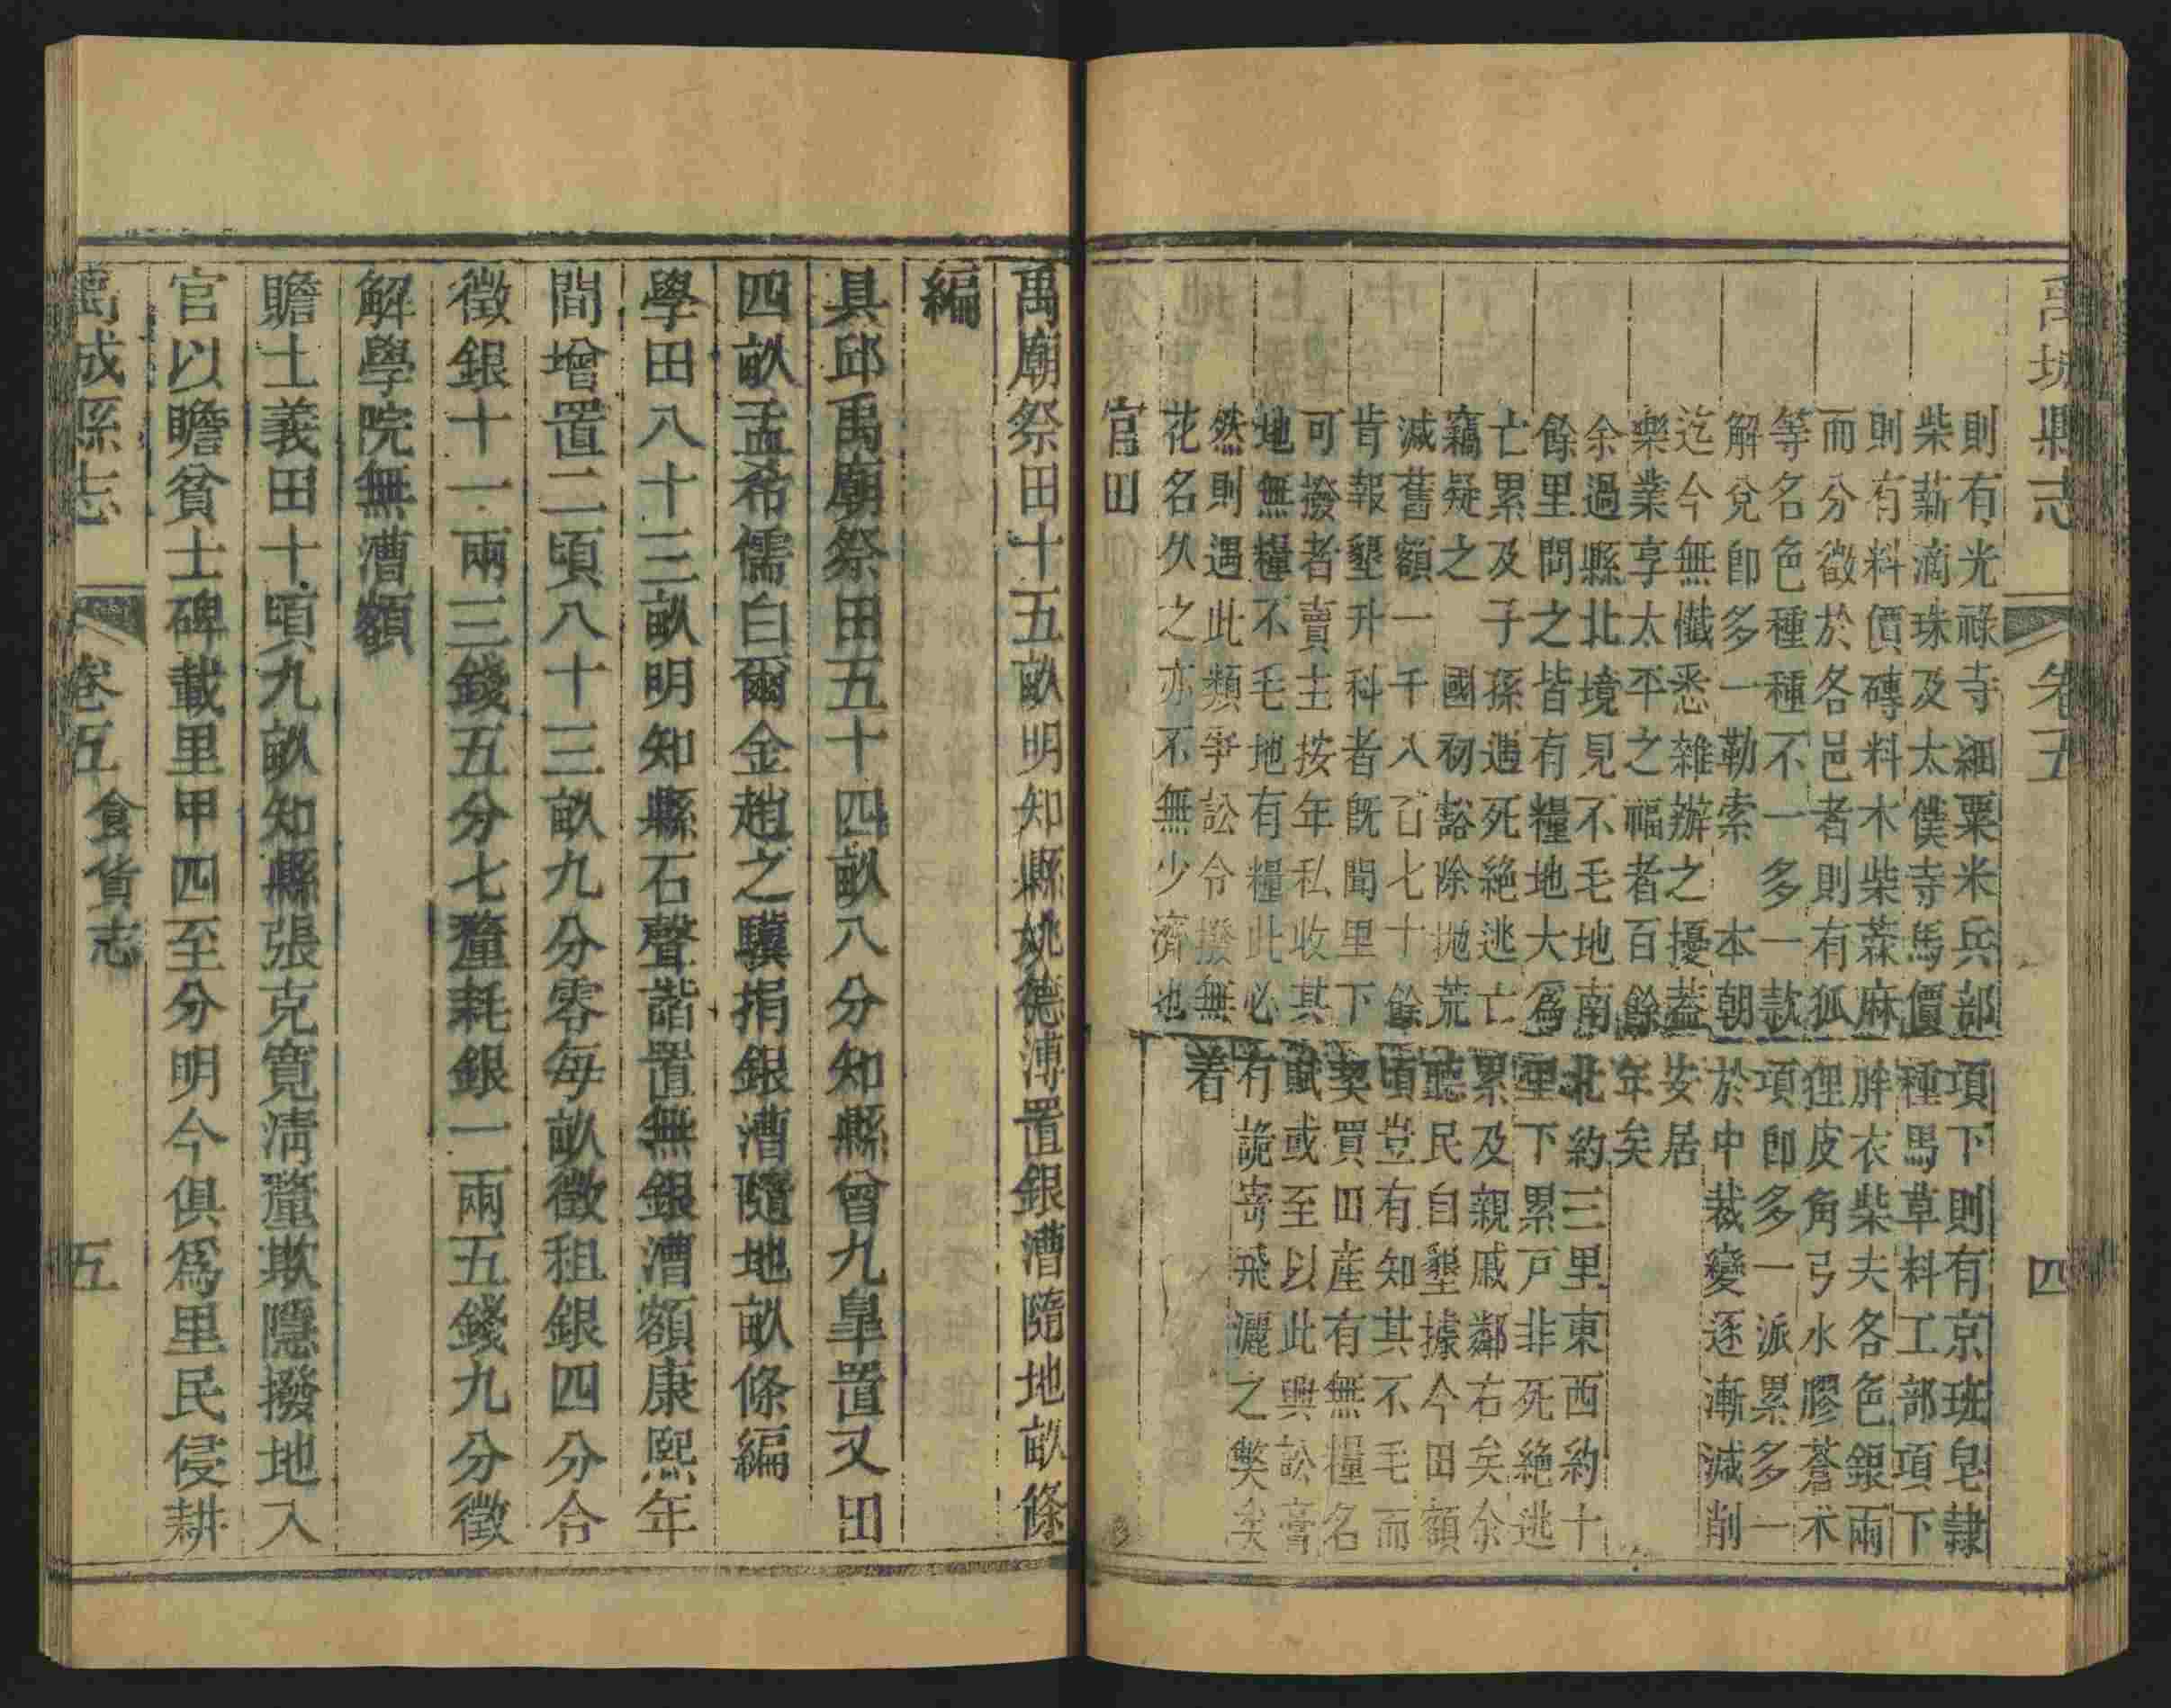 禹城縣志 卷五 四
則有光祿寺細粟米兵部項下則有京班皂隸
柴薪滴珠及太僕寺馬價種馬草料工部項下
則有料價磚料木柴蔴麻胖衣柴夫各色銀兩
而分徵於各邑者則有狐狸皮角弓水膠蒼朮
等名色種種不一多一款項即多一派累多一
解兌即多一勒索 本朝於中裁變逐漸減削
迄今無懺悉雜辦之擾蓋安居
樂業享太平之福者百餘年矣
余過縣北境見不毛地南北約三里東西約十
餘里問之皆有糧地大爲里下累戸非死絕逃
亡累及子孫遇死絕逃亡累及親戚鄰右矣余
竊疑之 國初豁除拋荒聽民自墾據今田額
減舊額一千八百七十餘頃豈有知其不毛而
肯報墾升科者旣聞里下契買田產有無糧名
可撥者賣主按年私收其賦或至以此興訟膏
地無糧不毛地有糧此必有詭寄飛灑之獘矣
然則遇此類爭訟令撥無着
花名久之亦不無少濟也
官田
禹廟祭田十五畝明知縣姚德溥置銀漕隨地畝條
編
具邱禹廟祭田五十四畝八分知縣曾九皐置又田
四畝孟希儒白爾金趙之驥捐銀漕隨地畝條編
學田八十三畝明知縣石聲諧置無銀漕額康熙年
間增置二頃八十三畝九分零每畝徵租銀四分合
徵銀十一兩三錢五分七釐耗銀一兩五錢九分徵
解學院無漕額
贍士義田十頃九畝知縣張克寬淸釐欺隱撥地入
官以贍貧士碑載里甲四至分明今俱爲里民侵耕
禹城縣志 卷五 食貨志 五